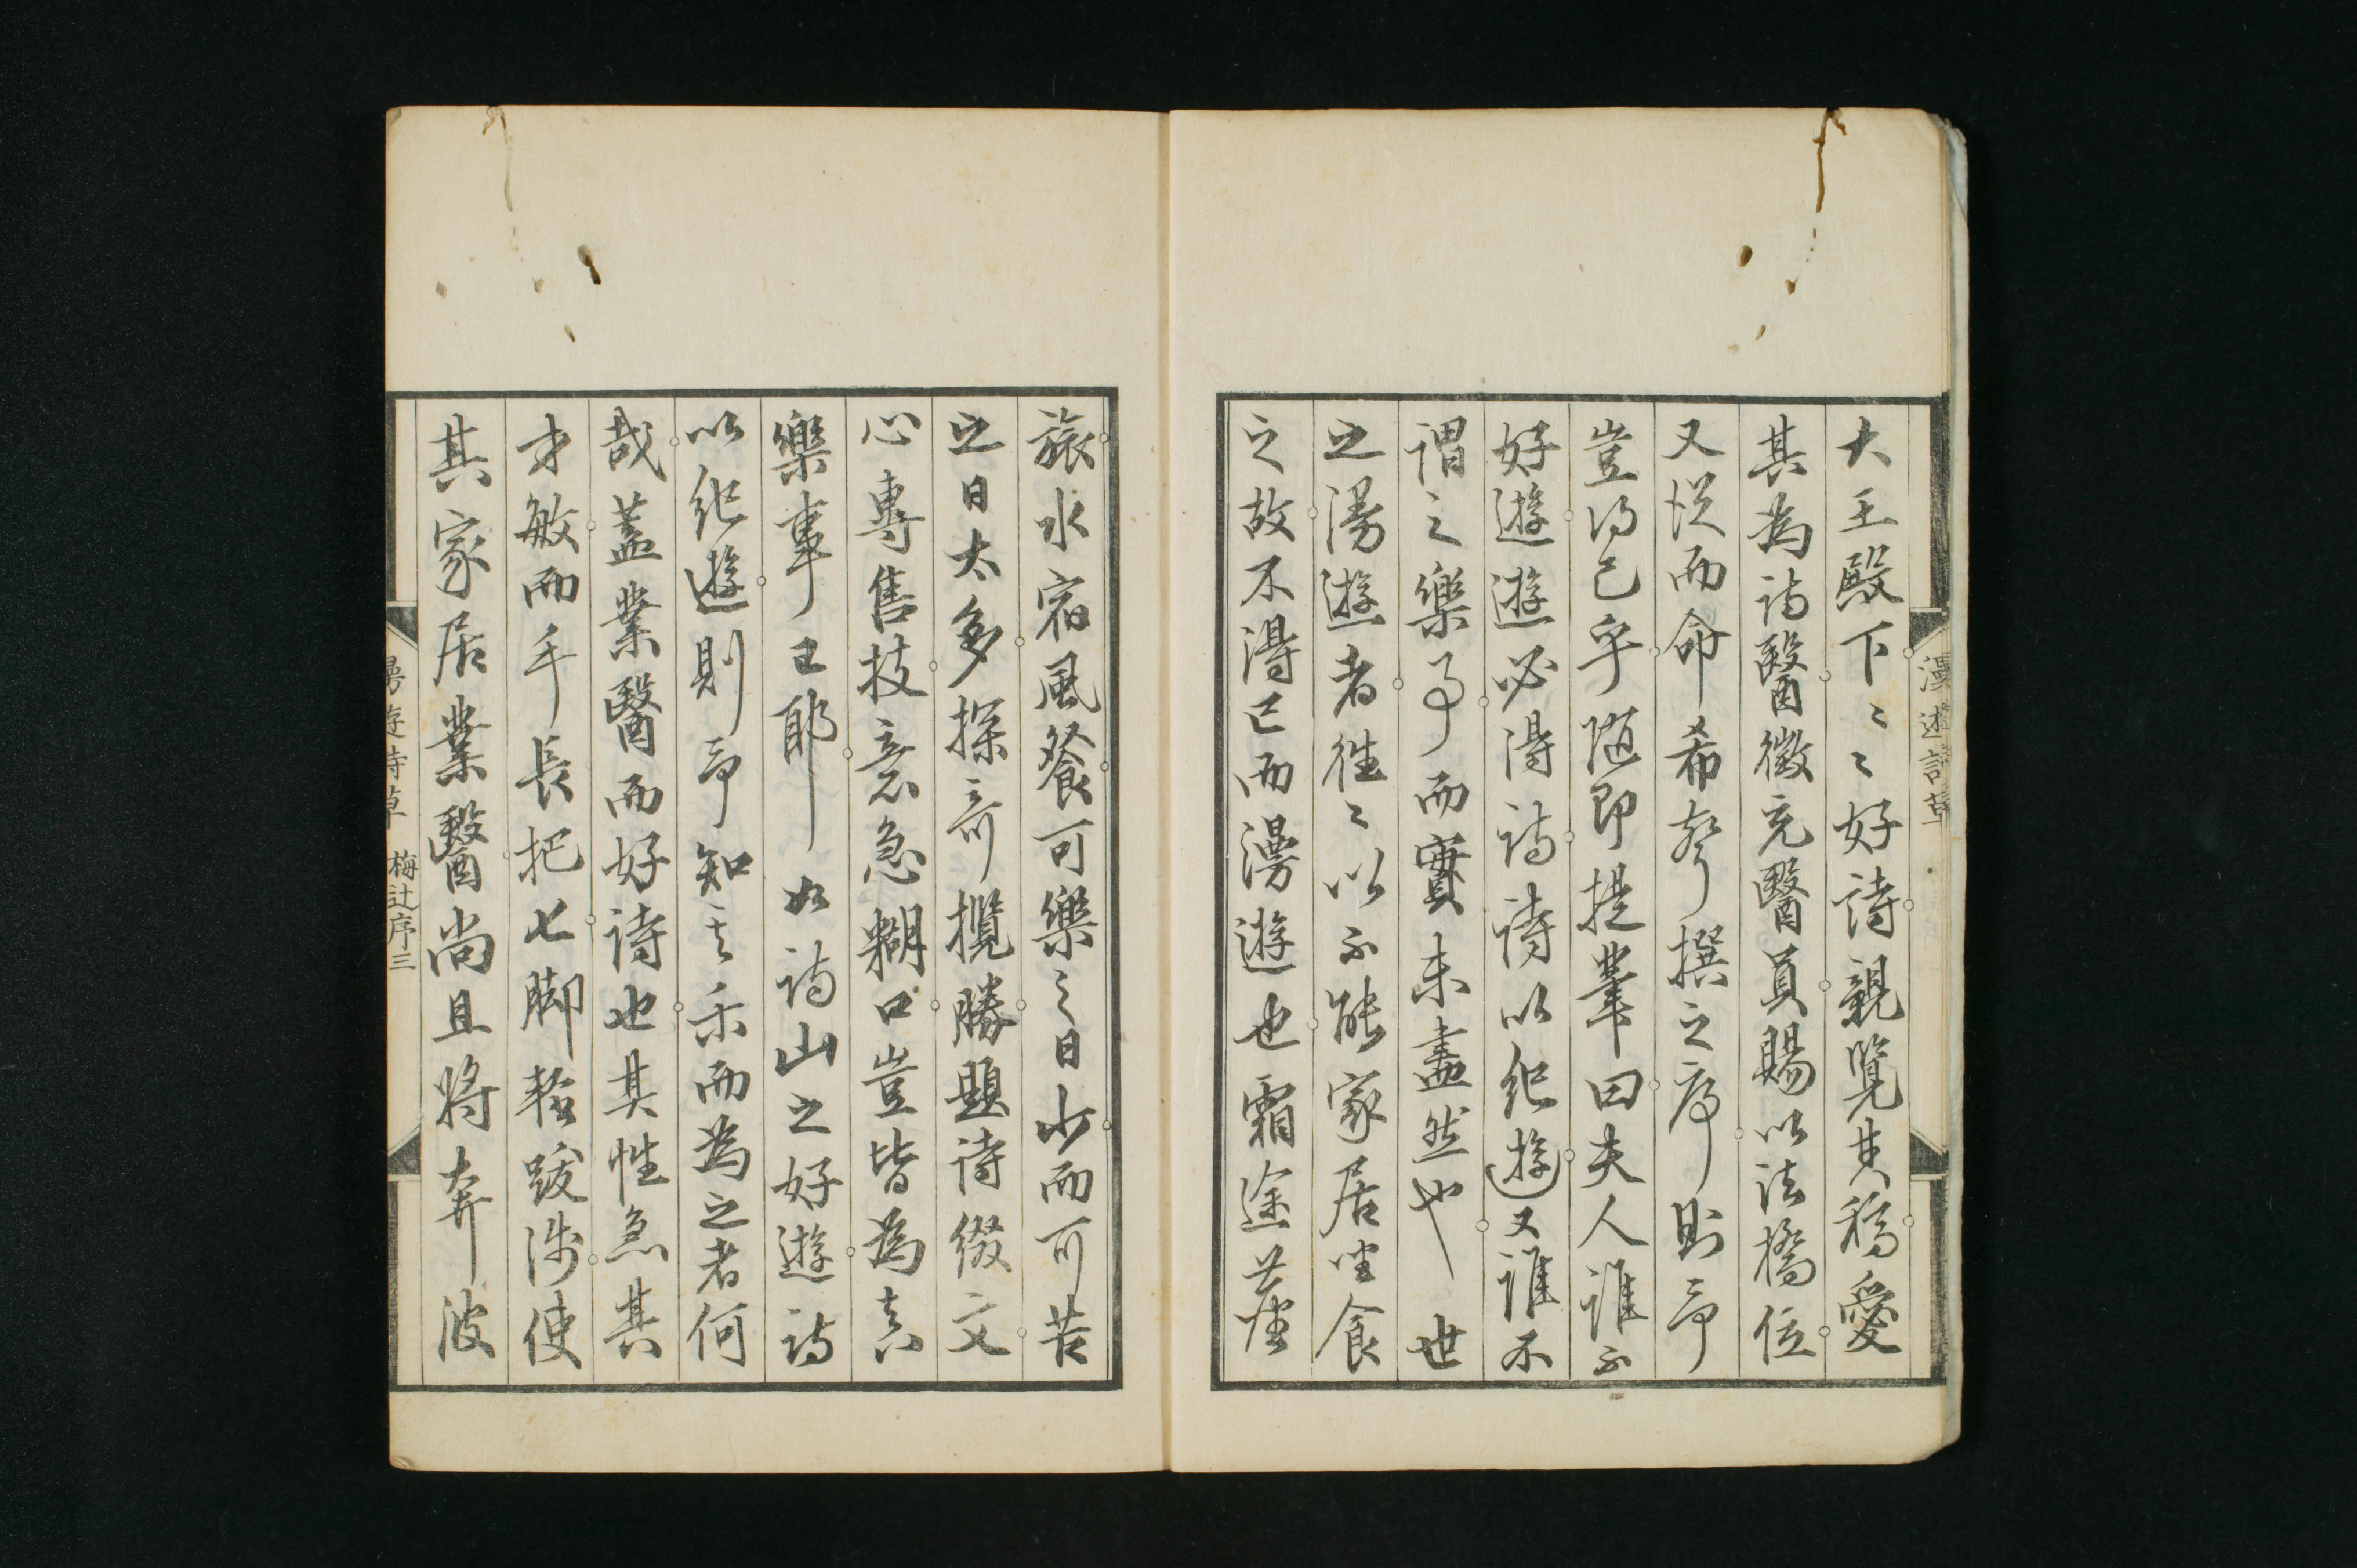 大王殿下〻〻好詩親覽其稿愛
其為詩醫徵充醫員賜以法橋位
又從而命希聲撰之序則予
豈得已乎隨即提筆曰夫人誰不
好遊遊必得詩詩以紀遊又誰不
謂之樂事而實未盡然也世
之漫遊者往〻以不能家居坐食
之故不得已而漫遊也霜途
旅水宿風餐可樂之日少而可苦
之日太多探奇攬勝題詩綴文
心專售技意急糊口豈皆為真
樂事已耶如詩山之好遊詩
以紀遊則予知其樂而為之者何
哉蓋業醫而好詩也其性急其
才敏而手長把匕脚輕跋涉使
其家居業醫尚且將奔波
漫遊詩草 梅辻序三